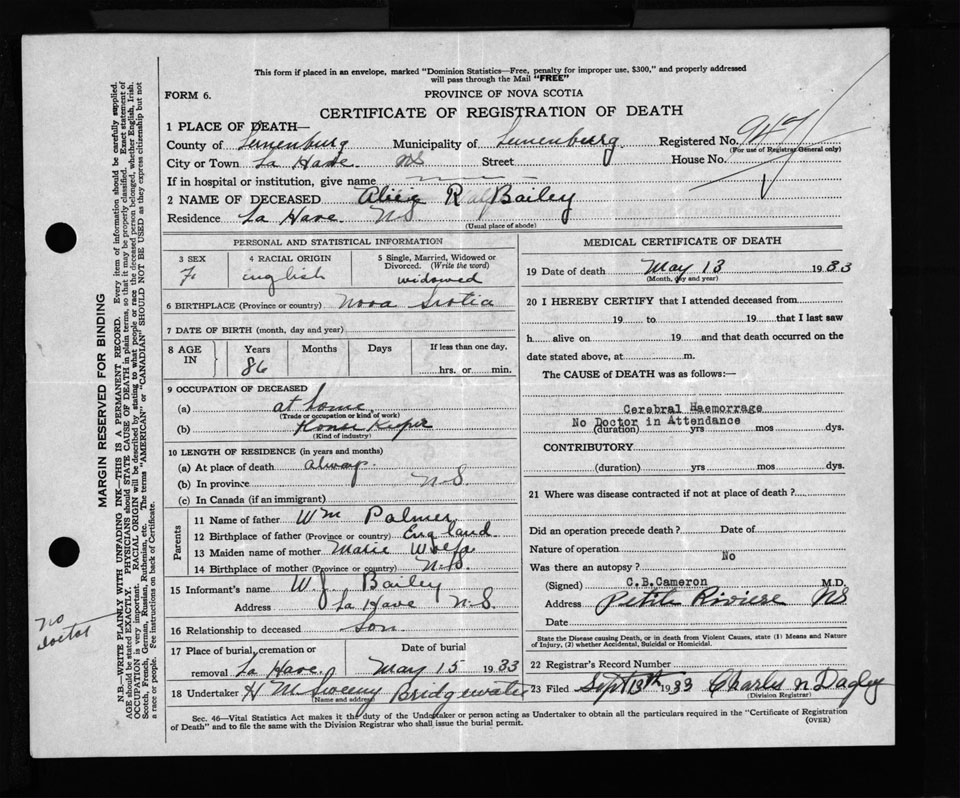 This form if placed in an envelope, marked "Dominion Statistics—Free, penalty for improper use, $300," and properly addressed
will pass through the Mail "FREE"
FORM 6.
PROVINCE OF NOVA SCOTIA
CERTIFICATE OF REGISTRATION OF DEATH
1 PLACE OF DEATH—
County of Lunenburg Municipality of Lunenburg Registered No. 947
(For use of Registrar General only)
City or Town La Have NS Street House No.
If in hospital or institution, give name
2 NAME OF DECEASED Alice R Bailey
Residence La Have NS
(Usual place of abode)
PERSONAL AND STATISTICAL INFORMATION
3 SEX 4 RACIAL ORIGIN 5 Single, Married, Widowed or
Divorced. (Write the word)
F English widowed
6 BIRTHPLACE (Province or country) Nova Scotia
7 DATE OF BIRTH (month, day and year)
8 AGE IN Years Months Days If less than one day,
86 hrs. or min.
9 OCCUPATION OF DECEASED
(a) at home
(Trade or occupation or kind of work)
(b) House Keeper
(Kind of industry)
10 LENGTH OF RESIDENCE (in years and months)
(a) At place of death always
(b) In province N.S.
(c) In Canada (if an immigrant)
Parents
11 Name of father Wm Palmer
12 Birthplace of father (Province or country) England
13 Maiden name of mother Marie Wolfe
14 Birthplace of mother (Province or country) N.S.
15 Informant's name W. J. Bailey
Address La Have N.S.
16 Relationship to deceased Son
17 Place of burial, cremation or Date of burial
removal La Have. May 15 1933
18 Undertaker H McSweeny Bridgewater
(Name and address)
MEDICAL CERTIFICATE OF DEATH
19 Date of death May 13 1933
(Month, day and year)
20 I HEREBY CERTIFY that I attended deceased from
19 to 19 that I last saw
h alive on 19 and that death occurred on the
date stated above, at m.
The CAUSE of DEATH was as follows:—
Cerebral Haemorrage
No Doctor in Attendance
(duration) yrs mos dys.
CONTRIBUTORY
(duration) yrs. mos. dys.
21 Where was disease contracted if not at place of death?
Did an operation precede death? Date of
Nature of operation
Was there an autopsy? No
(Signed) C.B.Cameron M.D.
Address Petite Riviere NS
Date
State the Disease causing Death, or in death from Violent Causes, state (1) Means and Nature
of Injury, (2) whether Accidental, Suicidal or Homicidal.
22 Registrar's Record Number
23 Filed Sept 13th 1933 Charles N Dagley
(Division Registrar)
Sec. 46—Vital Statistics Act makes it the duty of the Undertaker or person acting as Undertaker to obtain all the particulars required in the "Certificate of Registration
of Death" and to file the same with the Division Registrar who shall issue the burial permit.
(OVER)
MARGIN RESERVED FOR BINDING
N.B.—WRITE PLAINLY WITH UNFADING INK—THIS IS A PERMANENT RECORD. Every item of information should be carefully supplied.
AGE should be stated EXACTLY. PHYSICIANS should STATE CAUSE OF DEATH in plain terms, so that it may be properly classified. Exact statement of
OCCUPATION is very important. RACIAL ORIGIN will be described by stating to what people or race the deceased person belonged, whether English, Irish,
Scotch, French, German, Russian, Ruthenian, etc. The terms "AMERICAN" or "CANADIAN" SHOULD NOT BE USED as they express citizenship but not
a race or people. See instructions on back of Certificate.
no
Doctor